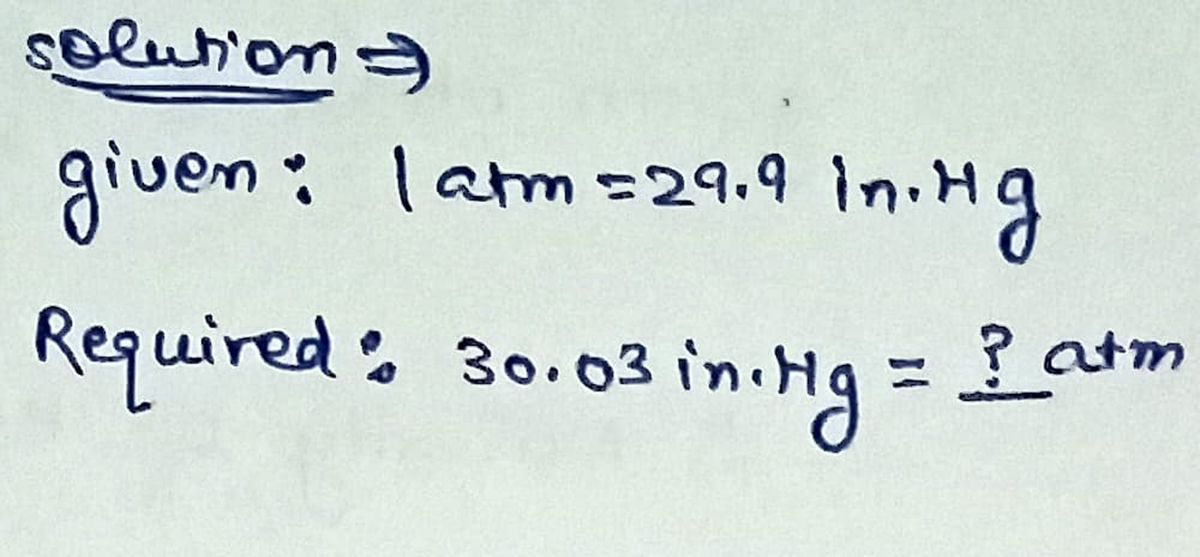 solution ⇒
given: 1 atm = 29.9 in.Hg
Required: 30.03 in.Hg = ? atm